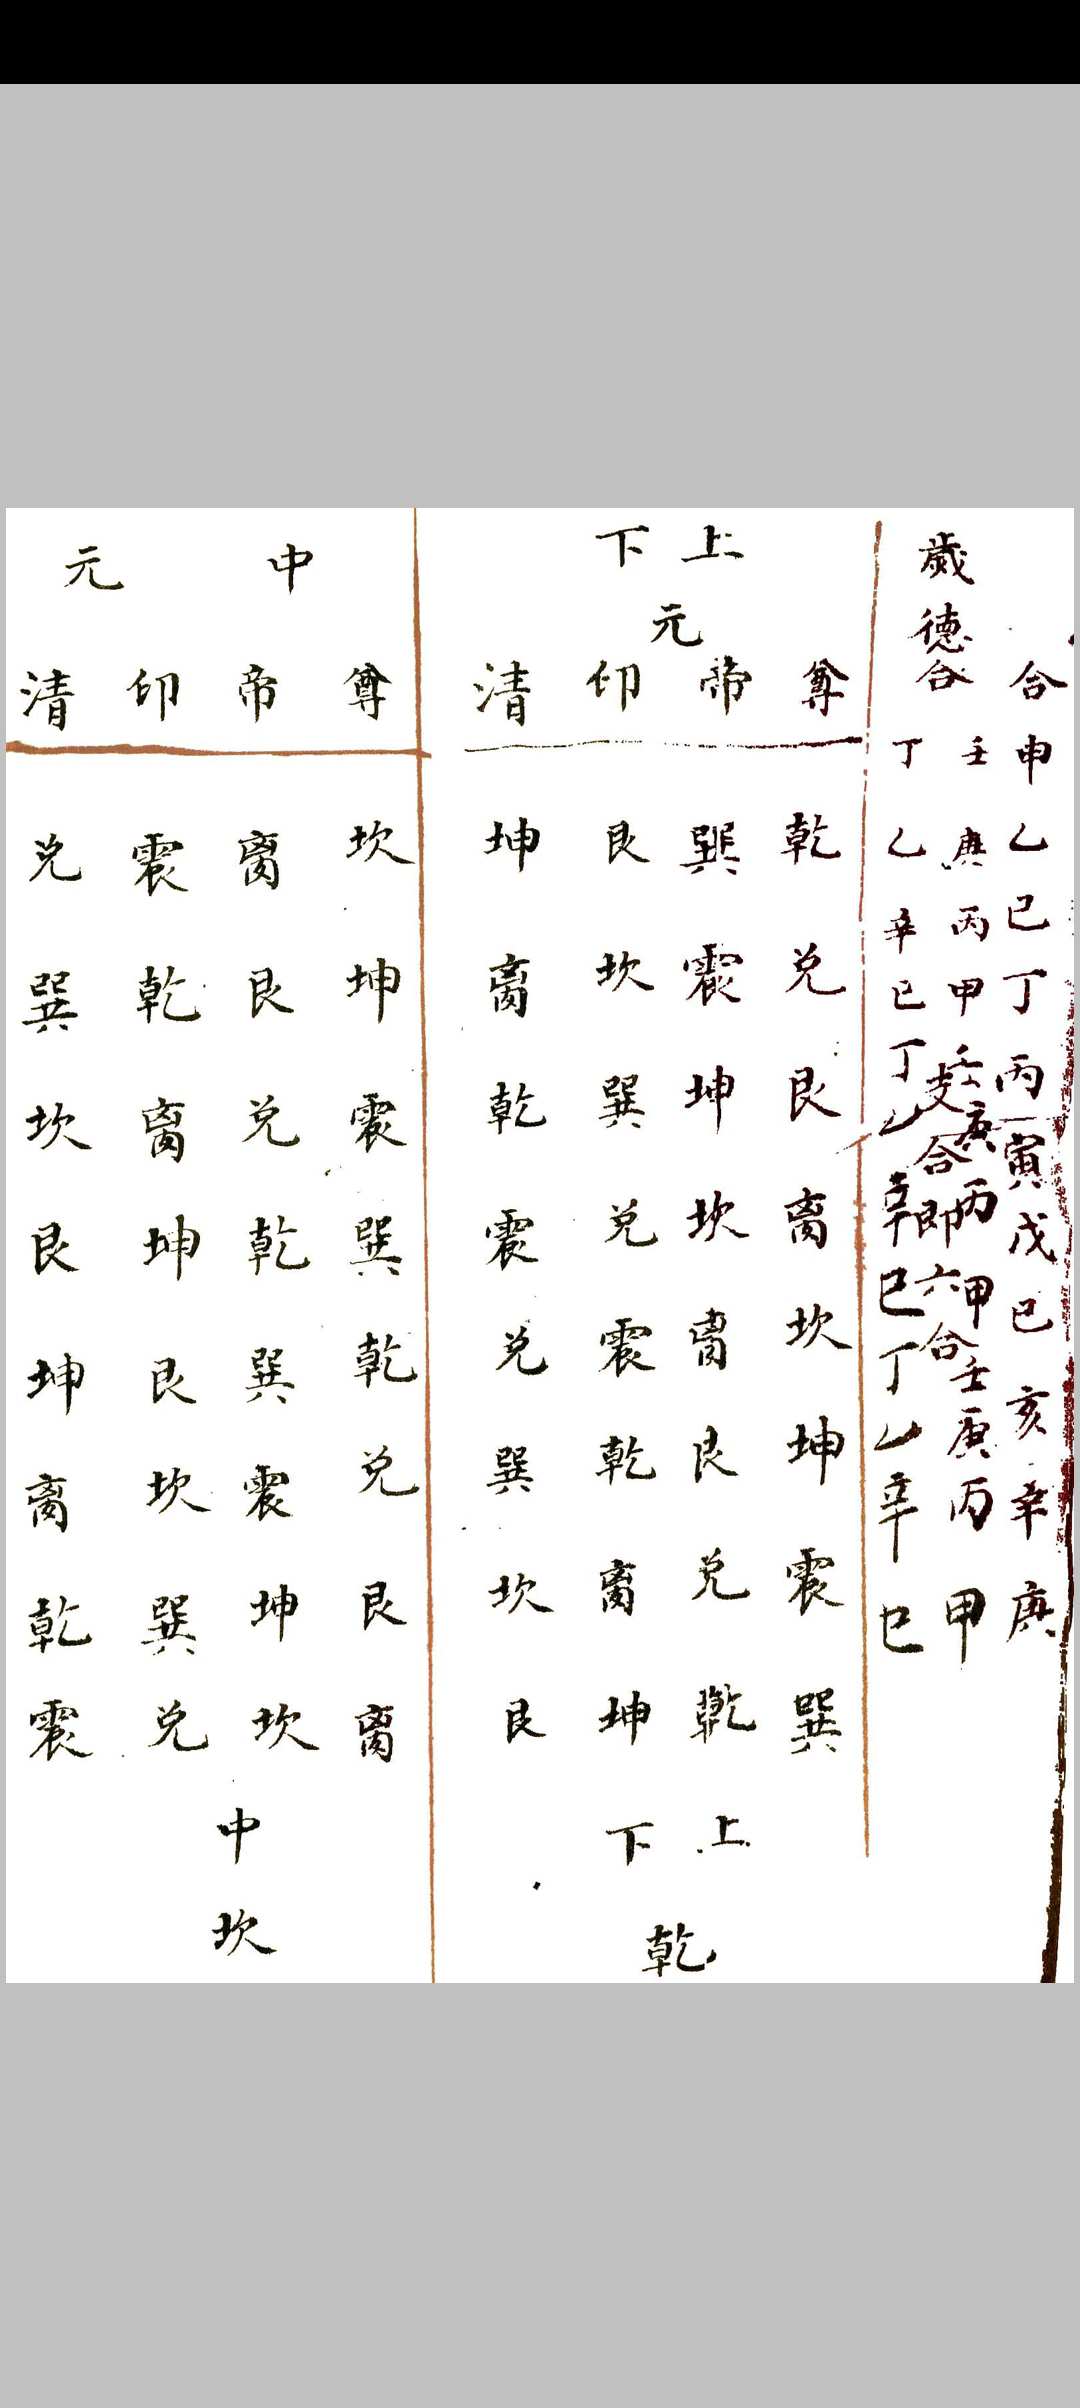 合申乙巳丁丙寅戊巳亥辛庚
歲德合
壬庚丙甲壬庚丙甲壬庚丙甲
支合即六合
丁乙辛巳丁乙辛巳丁乙辛巳
上下元
尊乾兌艮离坎坤震巽
帝巽震坤坎离艮兌乾
印艮坎巽兌震乾离坤
清坤离乾震兌巽坎艮
上下
乾
中元
尊坎坤震巽乾兌艮离
帝离艮兌乾巽震坤坎
印震乾离坤艮坎巽兌
清兌巽坎艮坤离乾震
中
坎